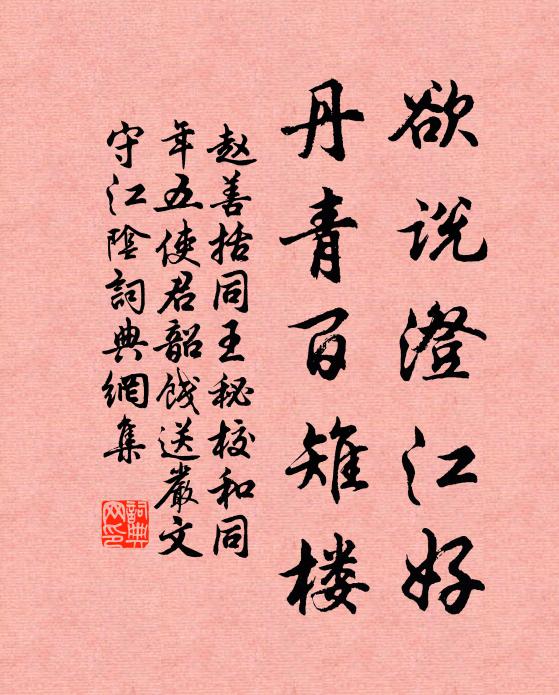 欲说澄江好
丹青百雉楼
赵善括同王秘校和同
年五使君韶饯送嚴文
守江陰詞典網集
詞典网印